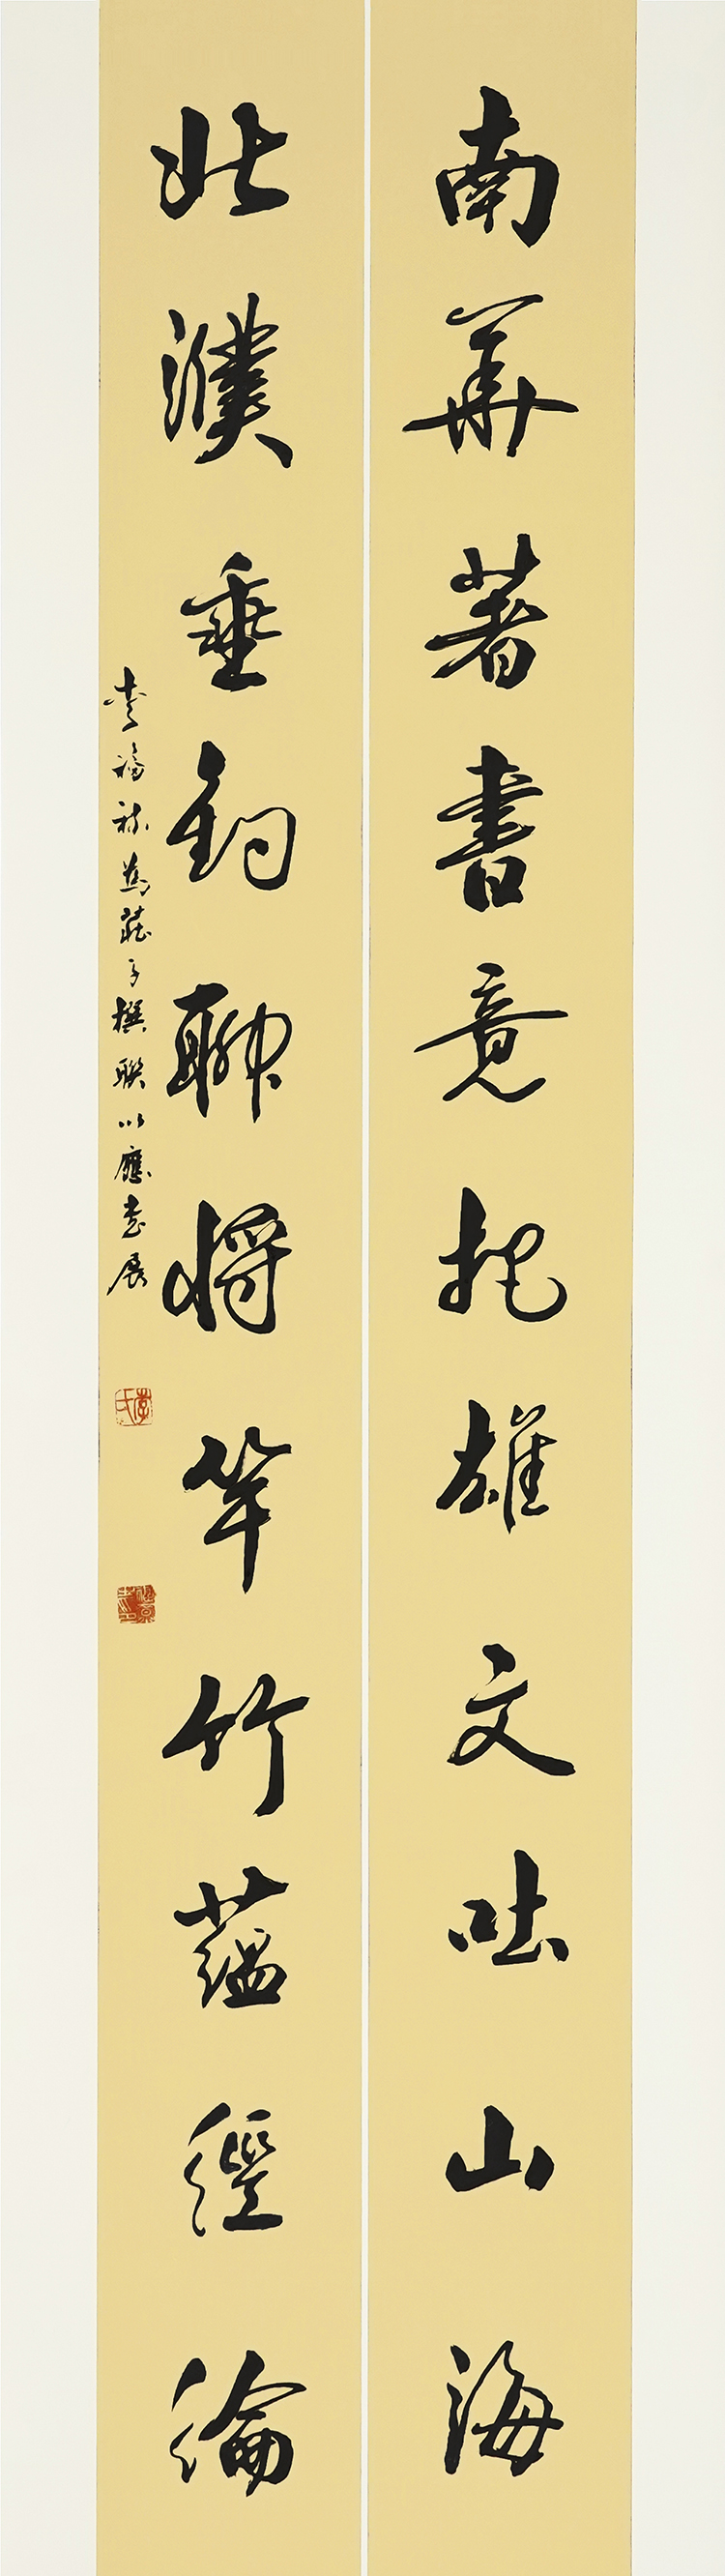 南華著書竟把雄文吐山海
北濮垂釣聊將竿竹蘊經綸
李福林為莊子撰聯以應書展
李氏